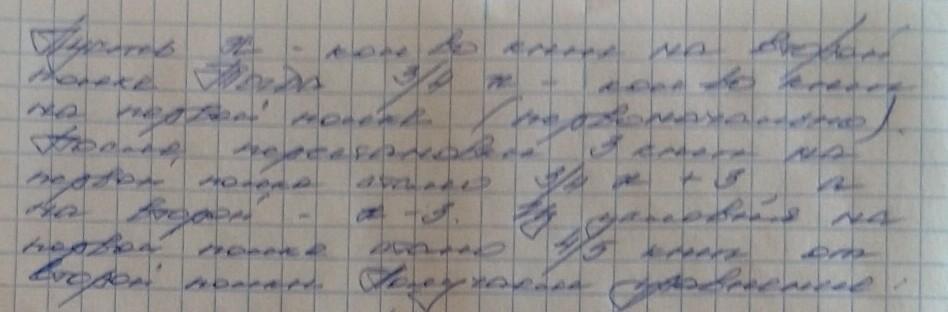 Пусть x - кол-во книг на второй
полке Тогда 3/4 x - кол-во книг
на первой полке (первоначально).
После перестановки 3 книг на
первой полке стало 3/4 x + 3, а
на второй - x - 3. Из условия на
первой полке стало 4/5 книг от
второй полки Получаем уравнение: